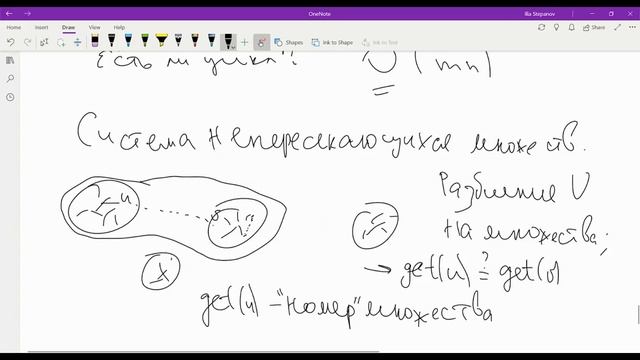 OneNote
Ilia Stepanov
File Home Insert Draw View Help
Shapes Ink to Shape Ink to Text
Есть ли цикл? O(mn)
Система непересекающихся множеств.
Разбиение V
на множества:
u v
→ get(u) ?= get(v)
get(u) – "номер" множества